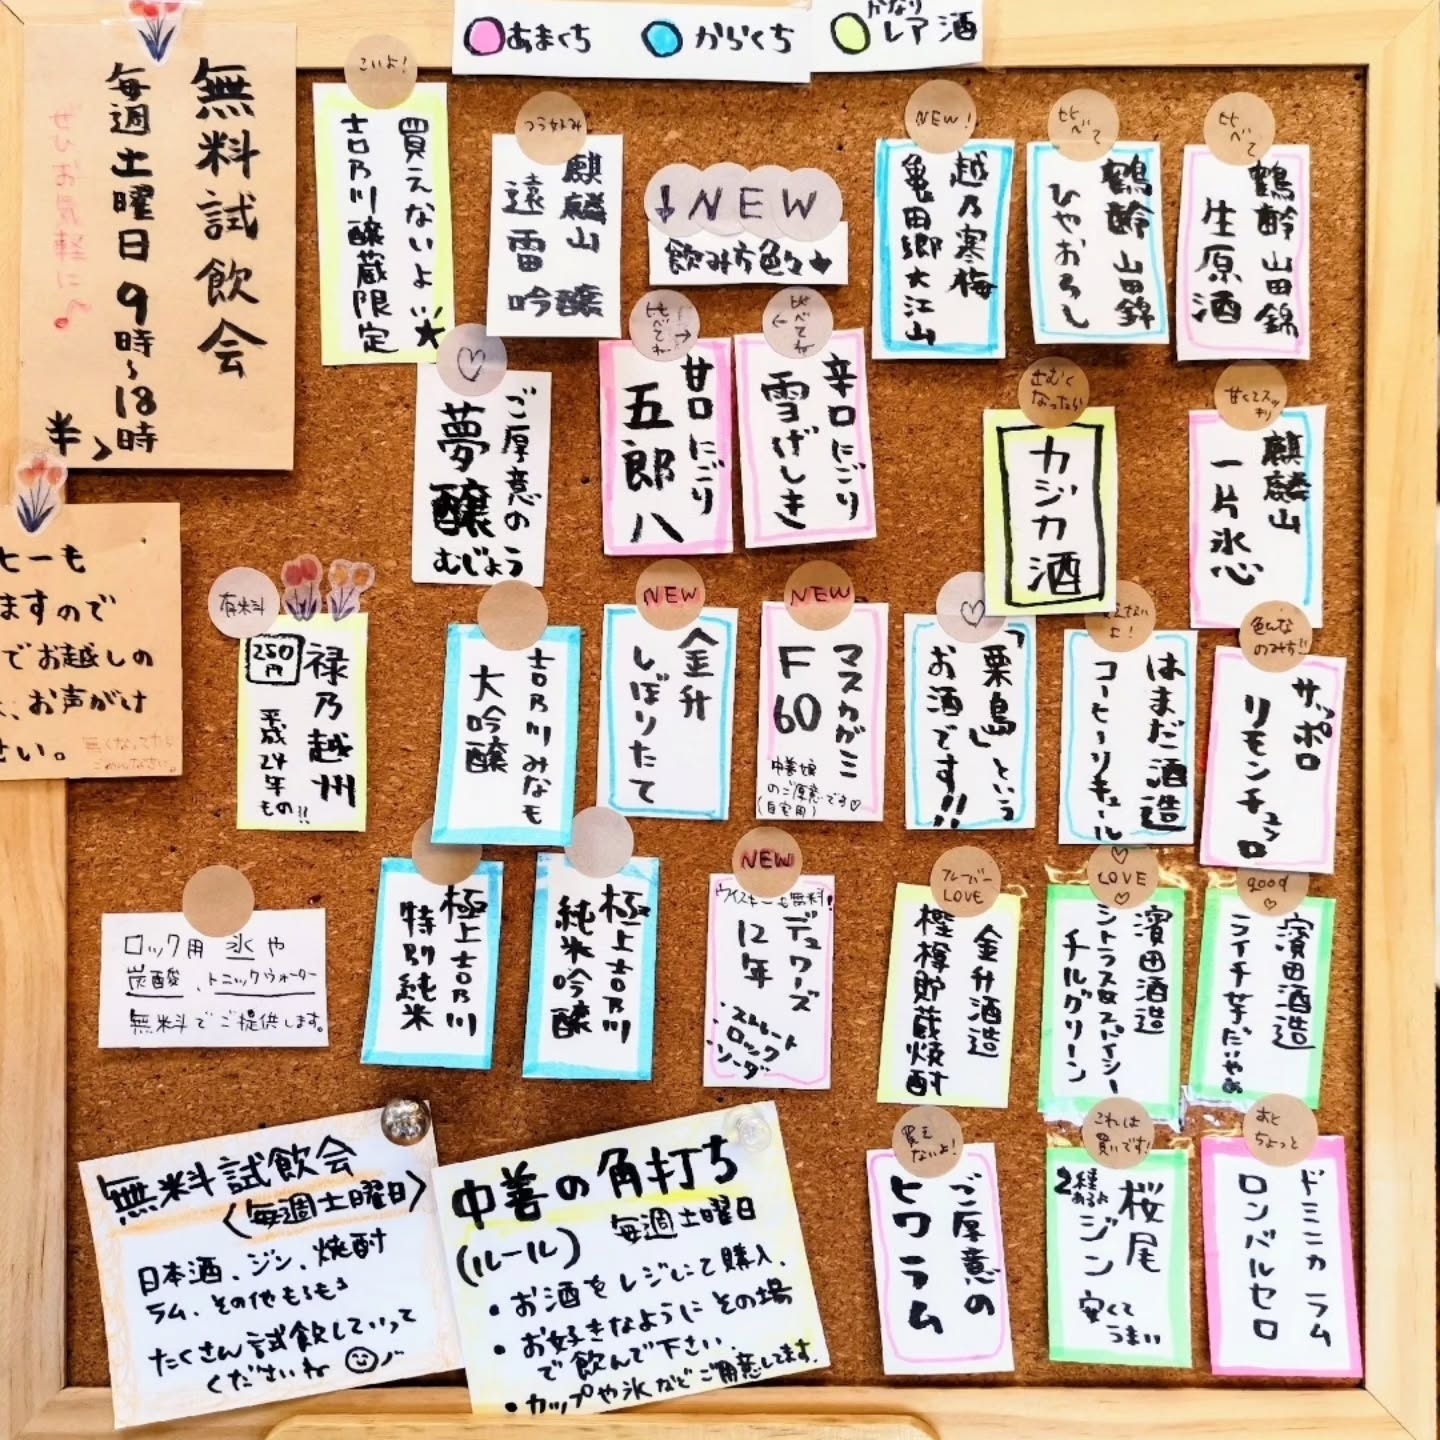 あまくち
からくち
かなり
レア酒
無料試飲会
毎週土曜日 9時〜18時半
ぜひお気軽に♪
こいよ!
買えないよ!!★
吉乃川醸蔵限定
麒麟山
遠雷 吟醸
↓NEW
飲み方色々
NEW!
越乃寒梅
亀田郷大江山
比べて
鶴齢 山田錦
ひやおろし
比べて
鶴齢 山田錦
生原酒
♡
ご厚意の
夢醸
むじょう
比べてね→
甘口にごり
五郎八
←比べてね
辛口にごり
雪げしき
さむく
なったら
カジカ酒
甘くてスッキリ
麒麟山
一片氷心
ヒーも
ますので
でお越しの
、お声がけ
さい。
無くなってたら
ごめんなさい。
有料
250円
禄乃越州
平成24年もの!!
吉乃川みなも
大吟醸
NEW
金升
しぼりたて
NEW
マスカガミ
F60
中善娘
のご厚意です♡
(自宅用)
♡
「粟島」という
お酒です!!
買えない
よ!
はまだ酒造
コーヒーリキュール
色んな
のみ方!!
サッポロ
リモンチェッロ
ロック用 氷や
炭酸、トニックウォーター
無料でご提供します。
極上吉乃川
特別純米
極上吉乃川
純米吟醸
NEW
ウイスキーも無料!
デュワーズ
12年
・ストレート
・ロック
・ソーダ
フレーバー
LOVE
金升酒造
樫樽貯蔵焼酎
♡
LOVE
♡
濱田酒造
シトラス&スパイシー
チルグリーン
good
♡
濱田酒造
ライチ芋だいやめ
無料試飲会
(毎週土曜日)
日本酒、ジン、焼酎
ラム、その他もろもろ
たくさん試飲していって
くださいね
中善の角打ち
(ルール) 毎週土曜日
・お酒をレジにて購入、
・お好きなようにその場
で飲んで下さい。
・カップや氷などご用意してます。
買え
ないよ!
ご厚意の
ヒワラム
これは
買いです!
2種あるよ
桜尾
ジン
安くて
うまい
あと
ちょっと
ドミニカ ラム
ロンバルセロ